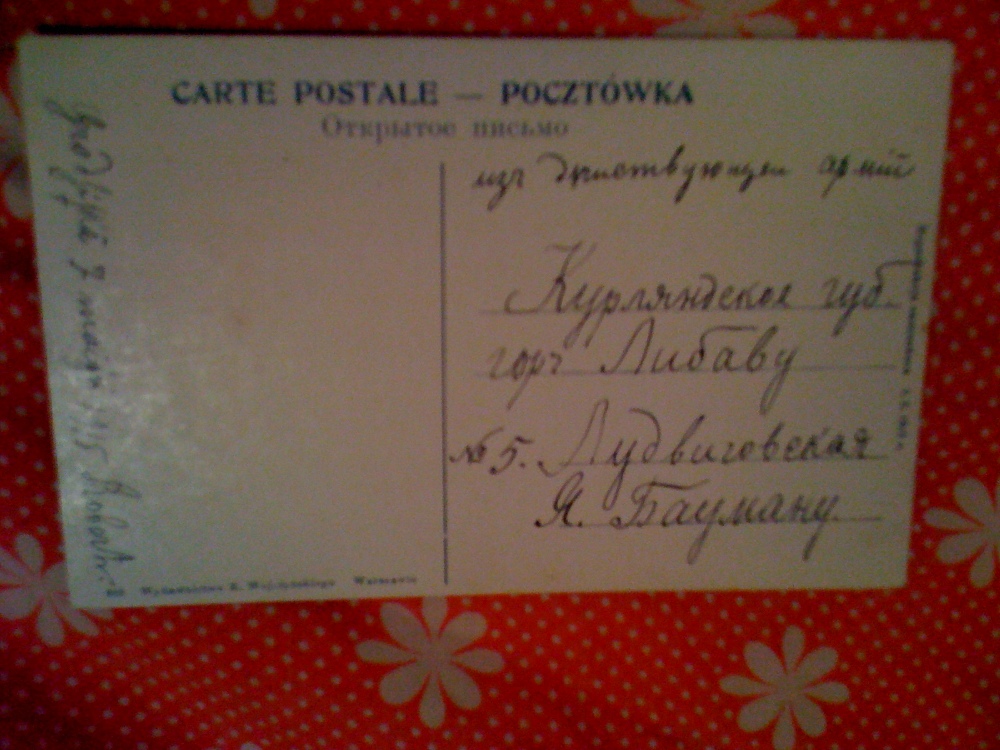 CARTE POSTALE — POCZTÓWKA
Открытое письмо
изъ действующей армiи
Курляндское губ.
горъ Либаву
№ 5. Лудвиговская
Я. Бауману
7 maijā
Wydawnictwo Warszawa